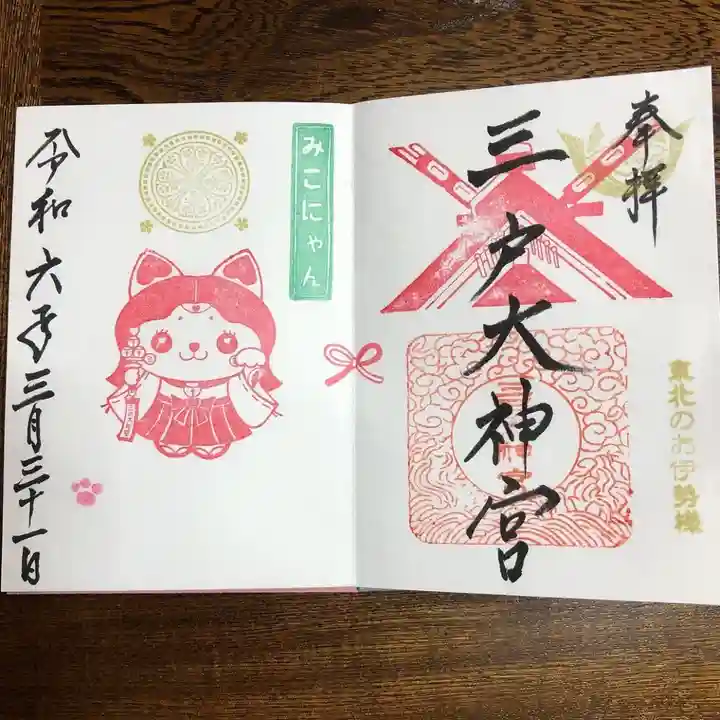 奉拝
三戸大神宮
東北のお伊勢様
みこにゃん
令和六年三月三十一日